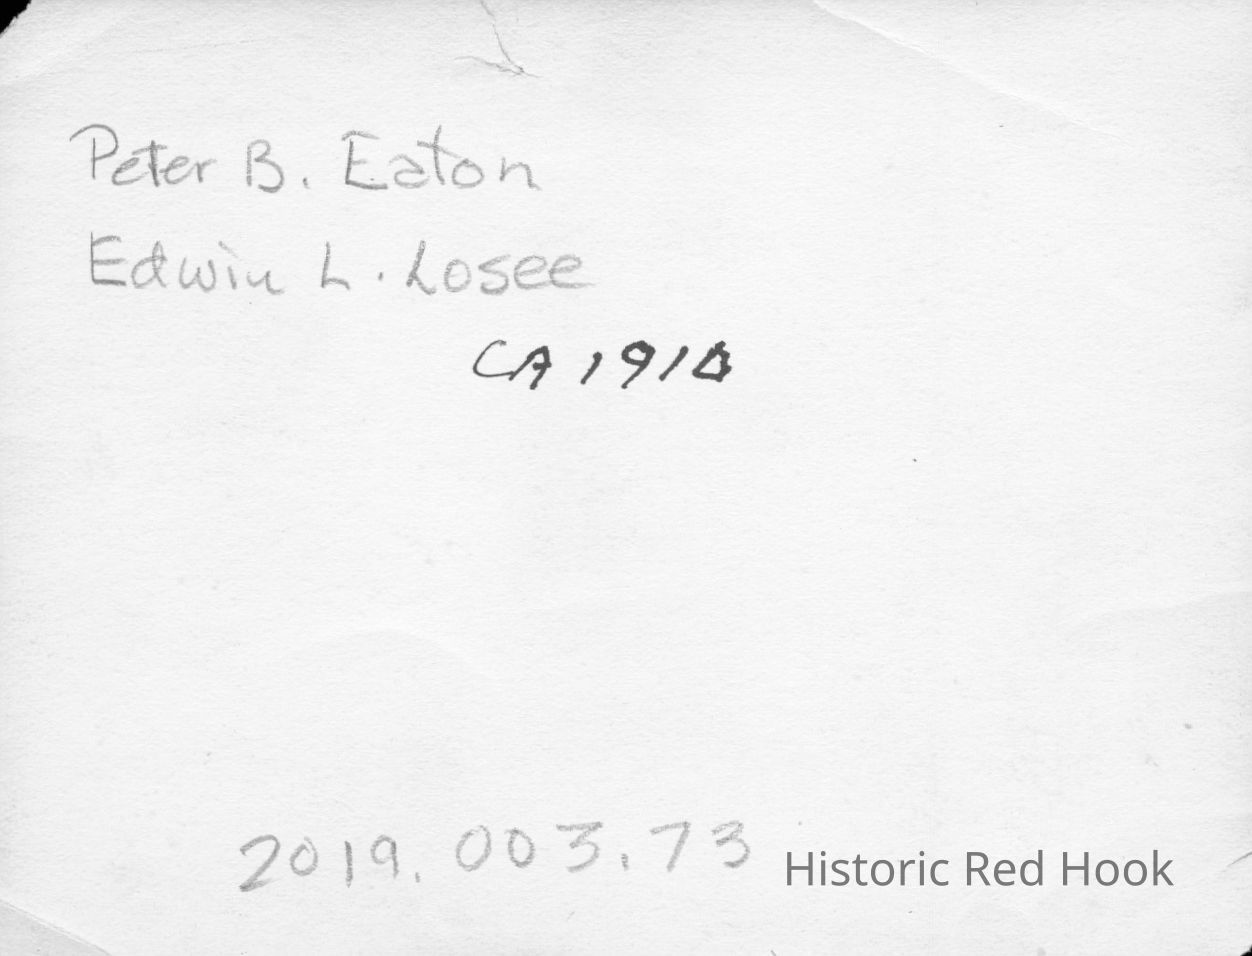 Peter B. Eaton
Edwin L. Losee
CA 1910
2019.003.73
Historic Red Hook